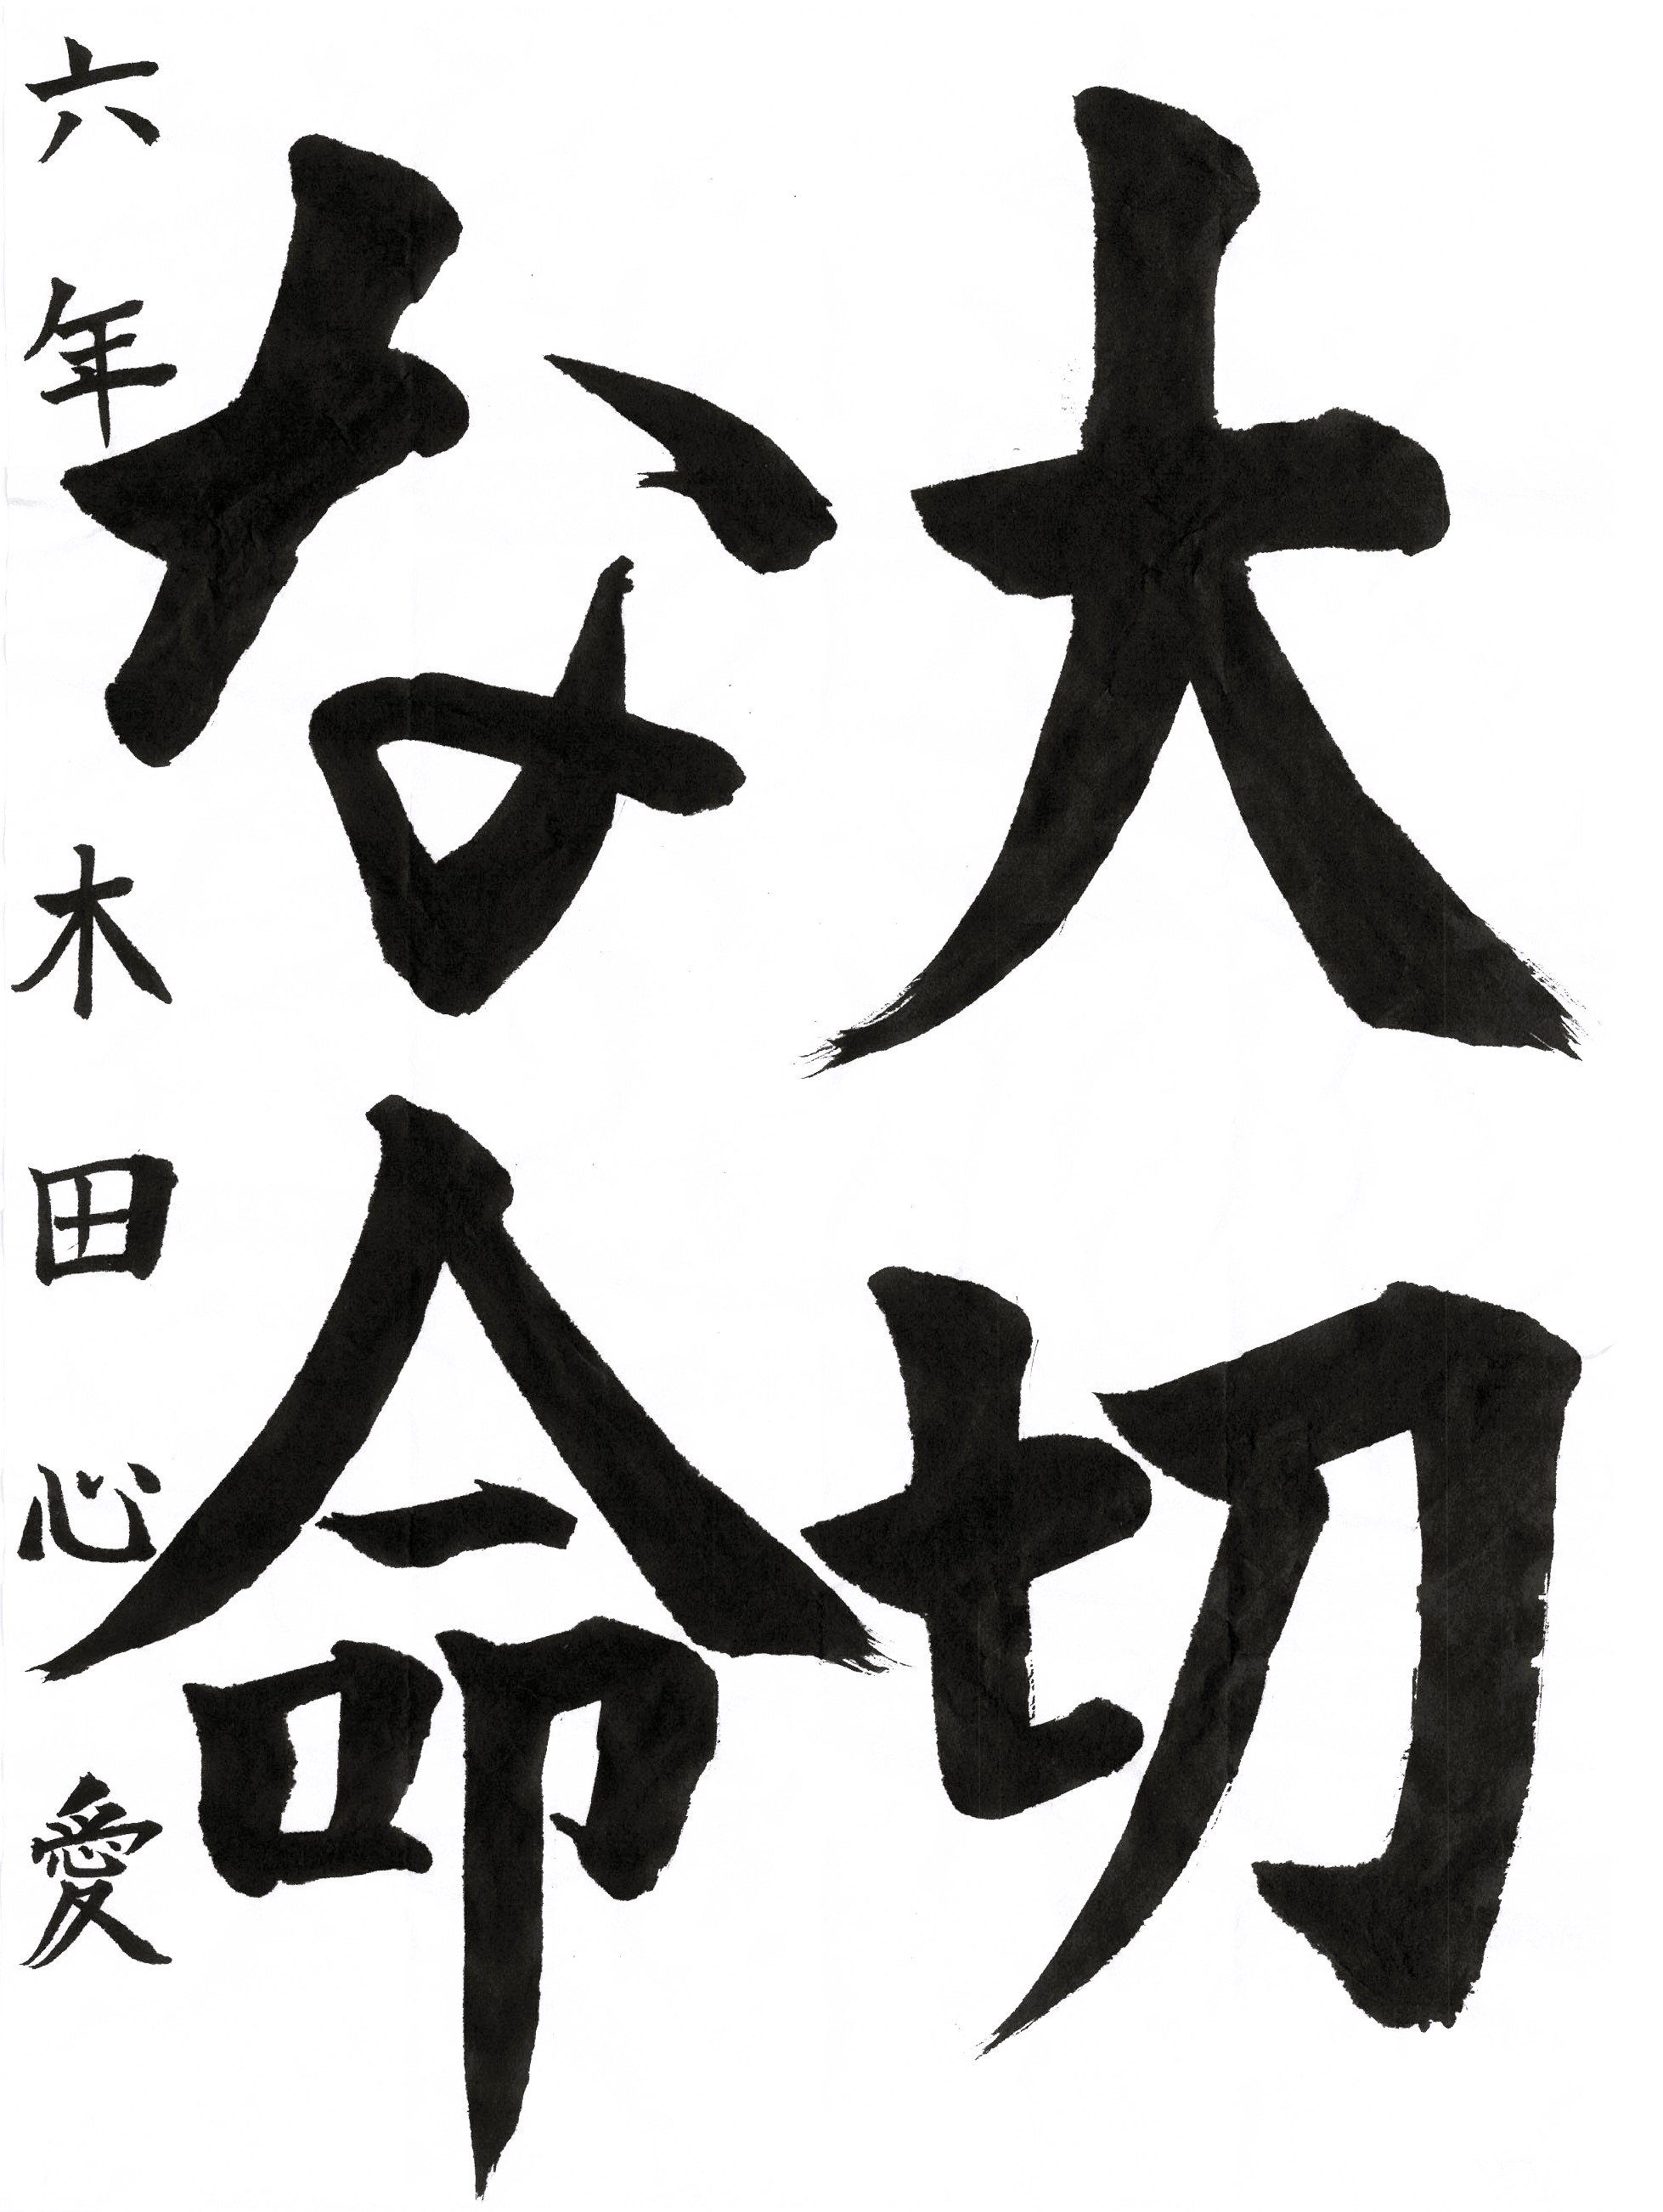 大切
な命
六年木田心愛